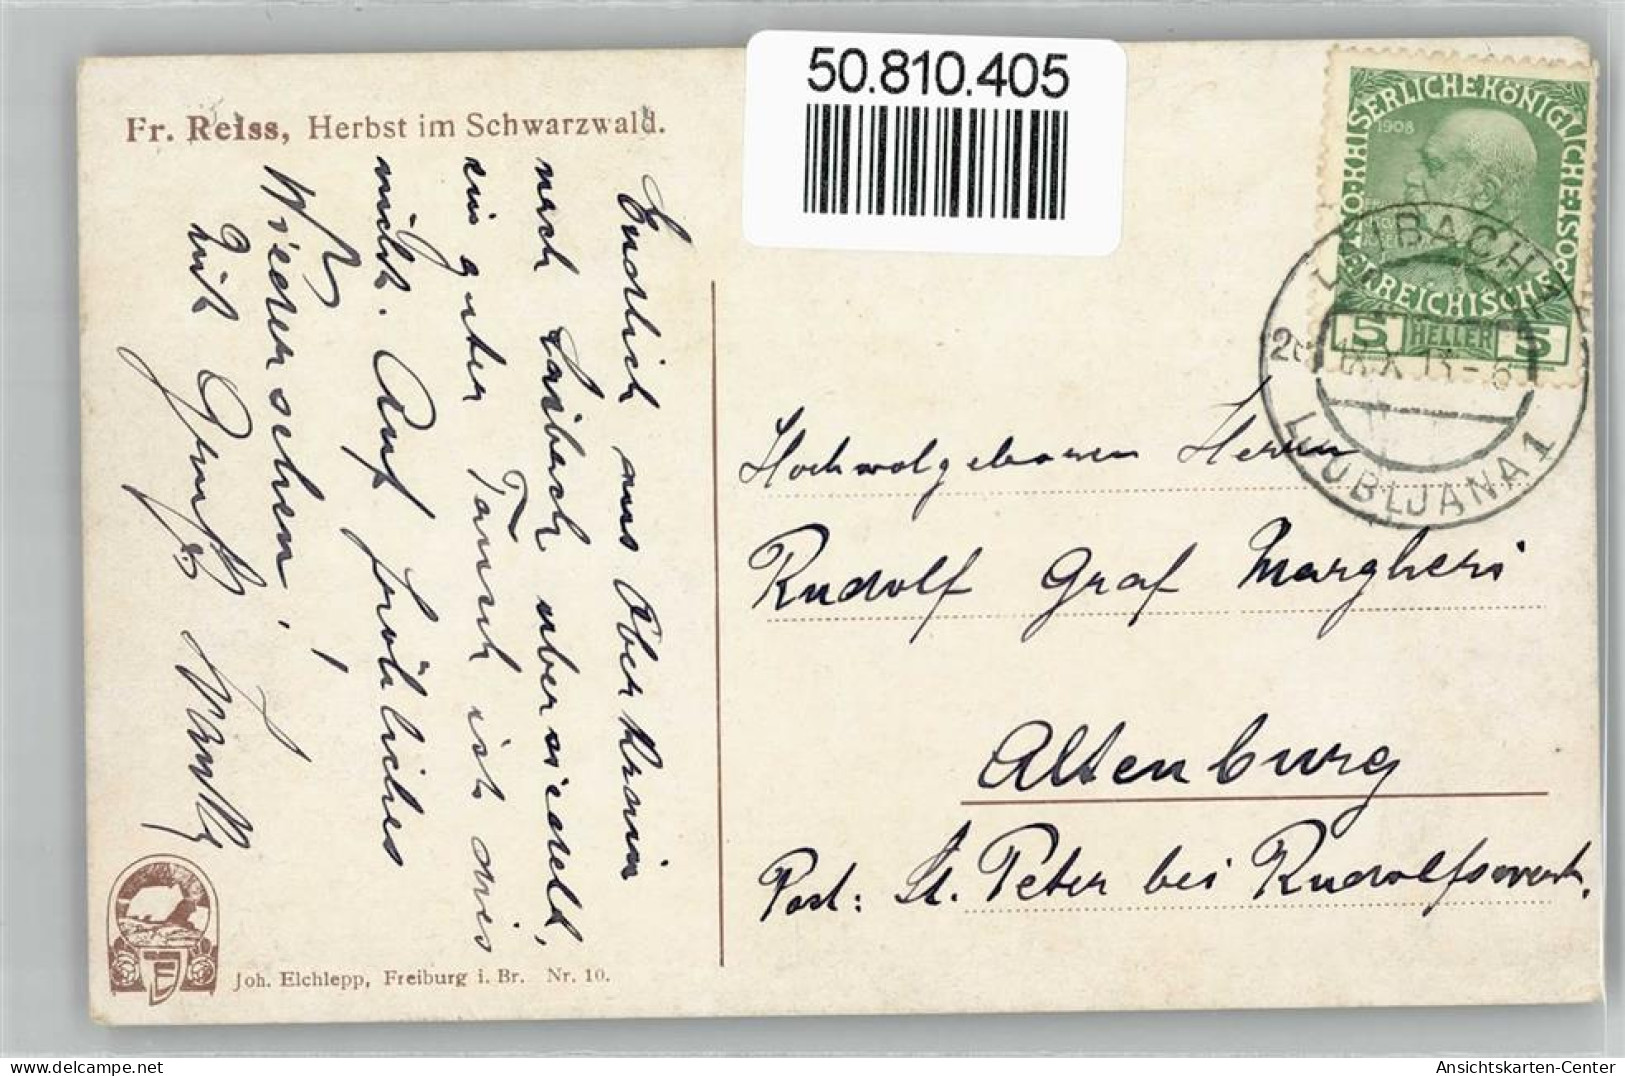 50.810.405
Fr. Reiss, Herbst im Schwarzwald.
Endlich aus Oberkrain
nach Laibach übersiedelt,
ein guter Tausch ist dies
nicht. Auf fröhliches
Wiedersehen!
Mit Gruß
KAISERLICHE KÖNIGLICHE
ÖSTERREICHISCHE
1908
5 HELLER 5
LAIBACH 1
LJUBLJANA 1
Hochwolgeboren Herrn
Rudolf Graf Margheri
Altenburg
Post: St. Peter bei Rudolfswerth.
Joh. Elchlepp, Freiburg i. Br. Nr. 10.
E
delcampe.net
Ansichtskarten-Center